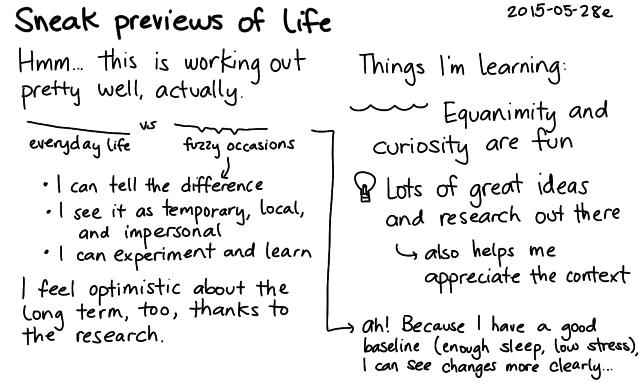 Sneak previews of life
2015-05-28e
Hmm... this is working out
pretty well, actually.
everyday life vs fuzzy occasions
• I can tell the difference
• I see it as temporary, local,
and impersonal
• I can experiment and learn
I feel optimistic about the
long term, too, thanks to
the research.
Things I'm learning:
Equanimity and
curiosity are fun
Lots of great ideas
and research out there
also helps me
appreciate the context
ah! Because I have a good
baseline (enough sleep, low stress),
I can see changes more clearly...